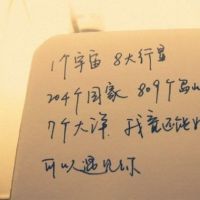 1个宇宙 8大行星
204个国家 809个岛
7个大洋, 我竟还能
可以遇见你